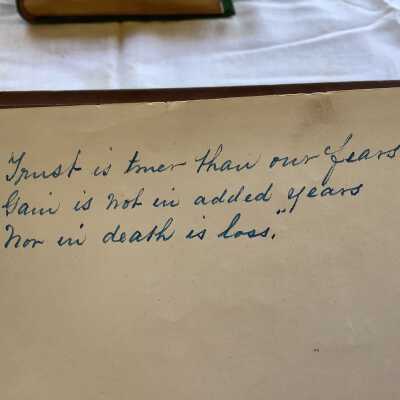 Trust is truer than our fears
Gain is not in added years
Nor in death is loss."